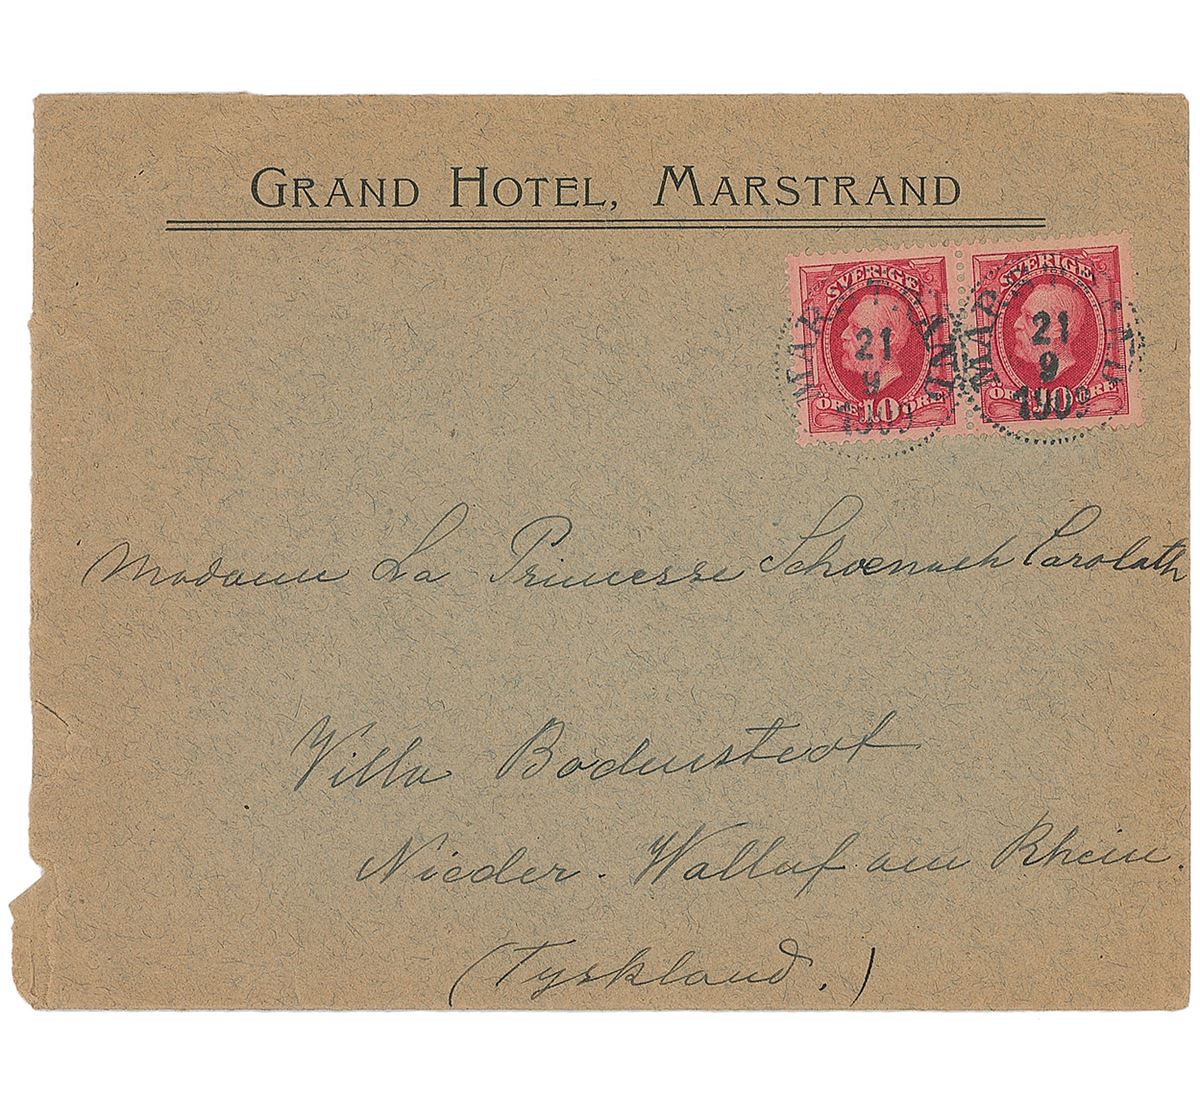 GRAND HOTEL, MARSTRAND
SVERIGE SVERIGE
MARSTRAND MARSTRAND
21 21
9 9
1909 1909
ÖRE 10 ÖRE ÖRE 10 ÖRE
Madame La Princesse Schoenach Carolath
Villa Bodenstedt
Nieder-Walluf am Rhein.
(Tyskland.)